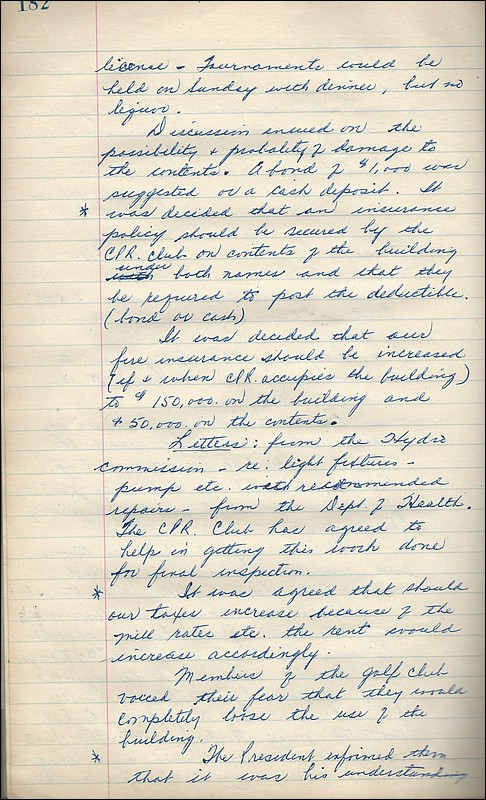 182
license - Tournaments could be
held on Sunday with dinner, but no
liquor.
Discussion ensued on the
possibility & probality of damage to
the contents. A bond of $1,000 was
suggested or a cash deposit. It
* was decided that an insurance
policy should be secured by the
CPR. Club on contents of the building
under
with both names and that they
be required to post the deductible.
(bond or cash)
It was decided that our
fire insurance should be increased
(if & when CPR. occupies the building)
to $150,000. on the building and
$50,000. on the contents.
Letters: from the Hydro
commission - re: light fixtures -
pump etc. with recommended
repairs - from the Dept. of Health.
The CPR. Club has agreed to
help in getting this work done
for final inspection.
* It was agreed that should
our taxes increase because of the
mill rates etc. the rent would
increase accordingly.
Members of the golf club
voiced their fear that they would
completly loose the use of the
building.
* The President informed them
that it was his understanding